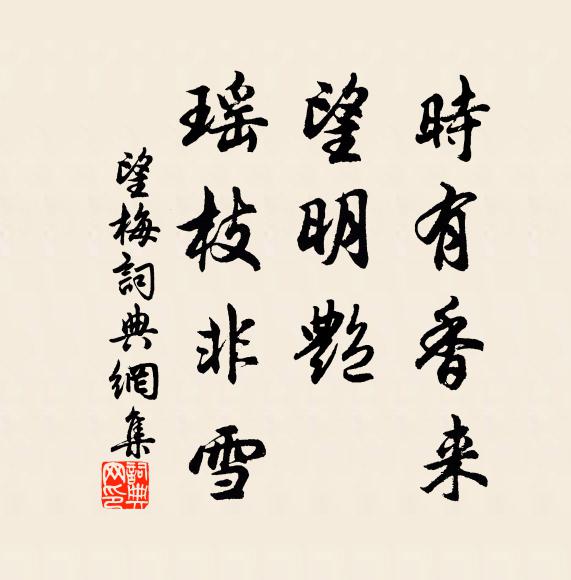 時有香来
望明艷
瑶枝非雪
望梅詞典網集
詞典网印